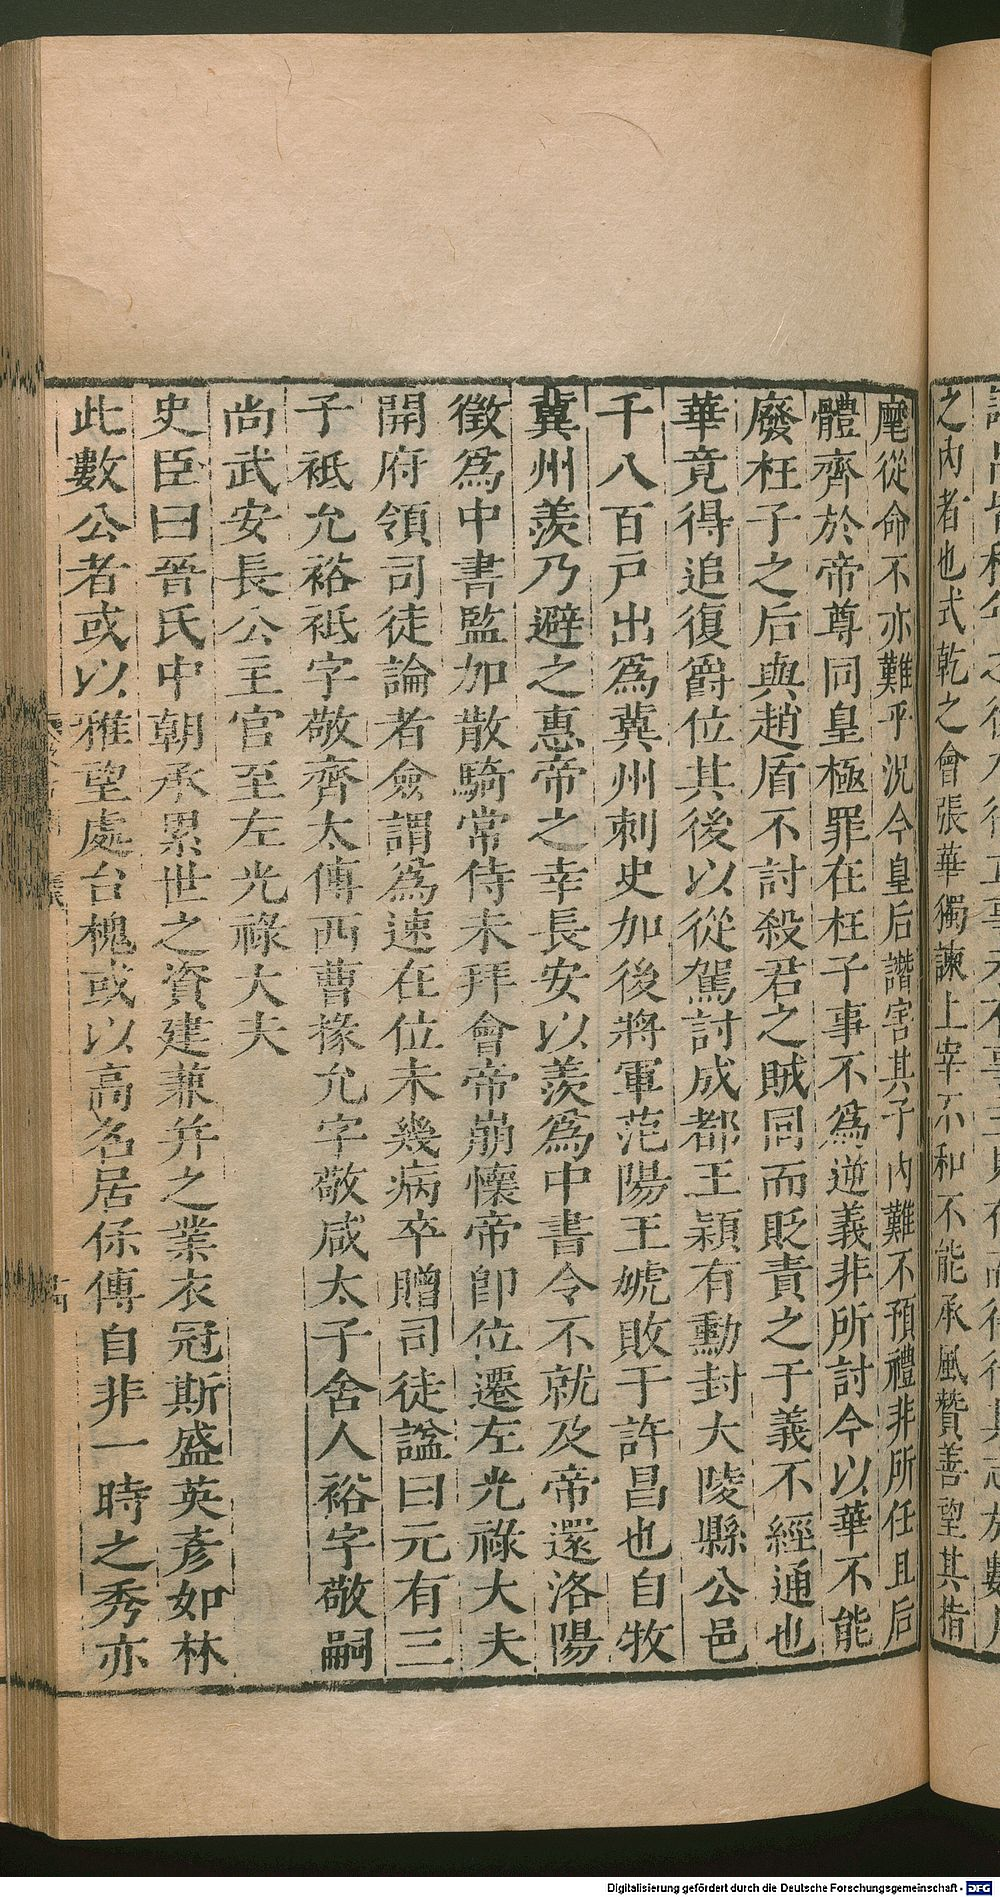 之內者也式乾之會張華獨諫上宰不和不能承風贊善望其指
麾從命不亦難乎況今皇后譖害其子內難不預禮非所任且后
體齊於帝尊同皇極罪在枉子事不爲逆義非所討今以華不能
廢枉子之后與趙盾不討殺君之賊同而貶責之于義不經通也
華竟得追復爵位其後以從駕討成都王穎有勳封大陵縣公邑
千八百戸出爲冀州刺史加後將軍范陽王虓敗于許昌也自牧
冀州羨乃避之惠帝之幸長安以羨爲中書令不就及帝還洛陽
徵爲中書監加散騎常侍未拜會帝崩懷帝卽位遷左光祿大夫
開府領司徒論者僉謂爲速在位未幾病卒贈司徒諡曰元有三
子祗允裕祗字敬齊太傅西曹掾允字敬咸太子舍人裕字敬嗣
尚武安長公主官至左光祿大夫
史臣曰晉氏中朝承累世之資建兼并之業衣冠斯盛英彥如林
此數公者或以雅望處台槐或以高名居保傅自非一時之秀亦
Digitalisierung gefördert durch die Deutsche Forschungsgemeinschaft - DFG